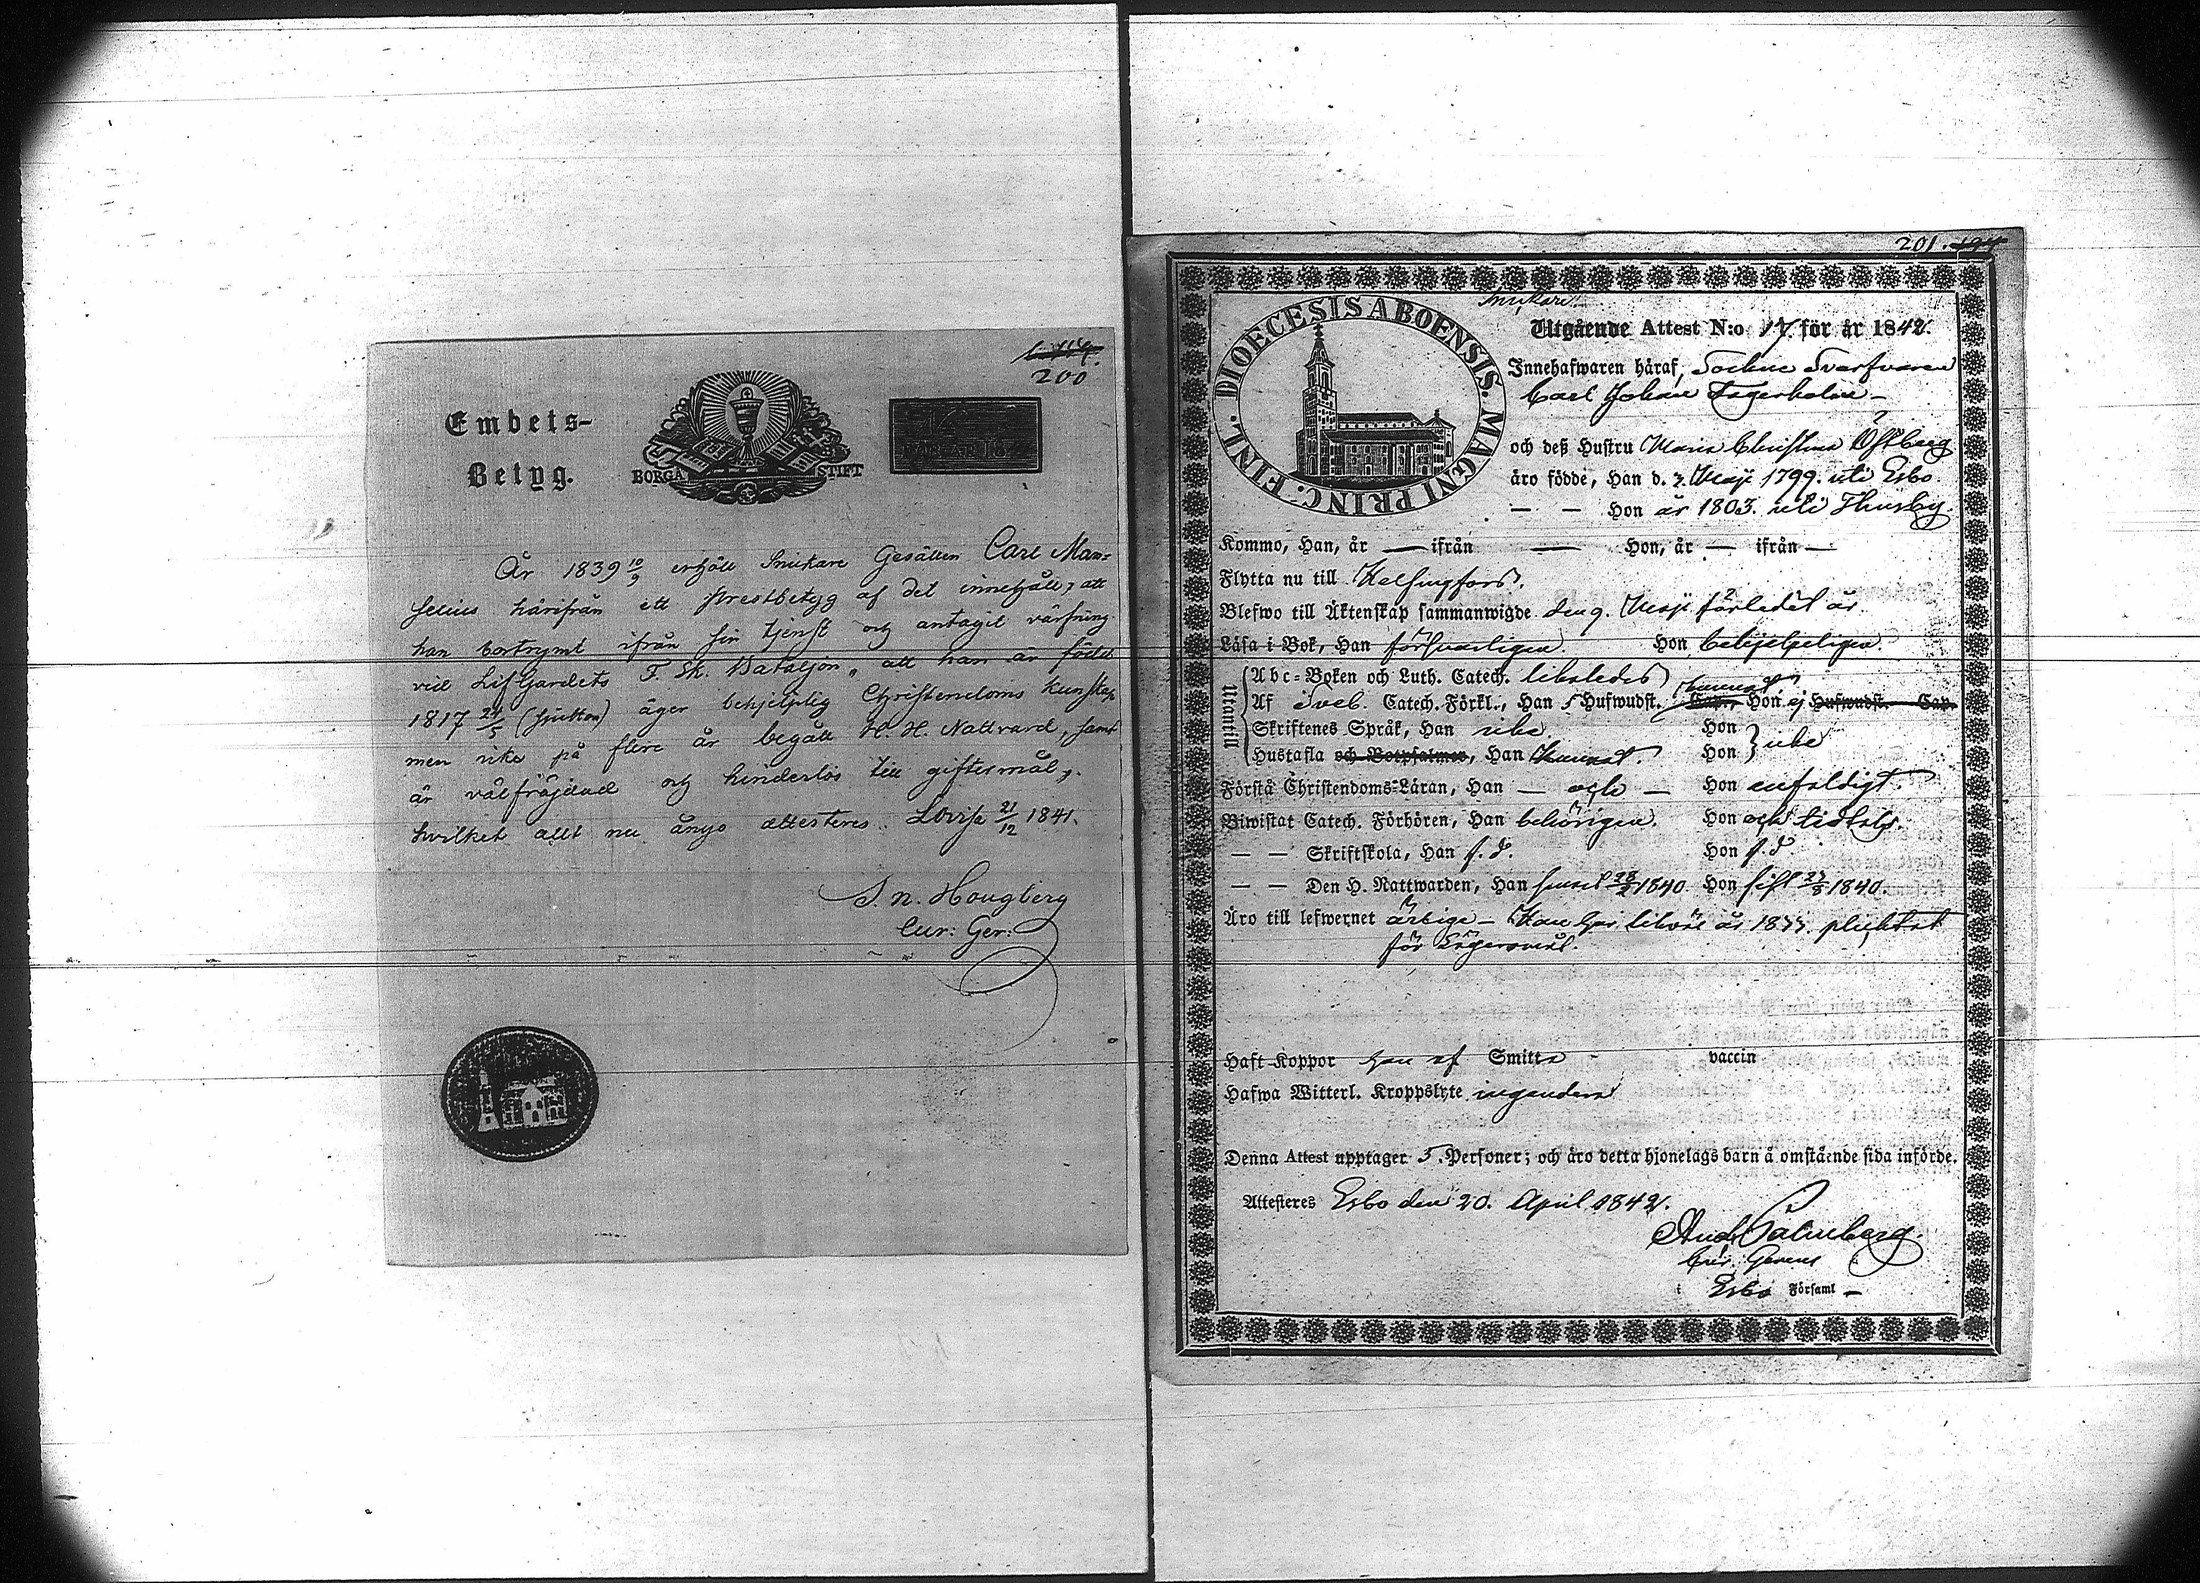 200
Embets-
Betyg.
BORGÅ STIFT
År 1839 10/9 erhöll Snickare Gesällen Carl Man-
selius härifrån ett Prestbetyg af det innehåll, att
han bortrymt ifrån sin tjenst och antagit värfning
vid LifGardets F. Sk. Bataljon, att han är född
1817 24/5 (sjutton) äger behjelplig Christendoms kunskap
men icke på flere år begått H. H. Nattvard, samt
är välfräjdad och hinderlös till giftermål;
hvilket allt nu ånyo attesteras. Lovisa 21/12 1841.
S. N. Hougberg
Cur: Ger:
201.
DIOECESIS ABOENSIS. MAGNI PRINC. FINL.
Snickare
Utgående Attest N:o 17. för år 1842.
Innehafwaren häraf, Sockne Svarfvaren
Carl Johan Fagerholm –
och deß Hustru Maria Christina Östberg
äro födde, Han d. 3. Maji 1799. uti Esbo.
— — Hon år 1803. uti Thusby.
Kommo, Han, år — ifrån — Hon, år — ifrån —
Flytta nu till Helsingfors.
Blefwo till Äktenskap sammanwigde den 9. Maji förledet år.
Läsa i Bok, Han försvarligen. Hon behjelpeligen.
Utantill
Abc-Boken och Luth. Catech. likaledes
Af Sveb. Catech. Förkl., Han 5 Hufwudst. kunnat Cap., Hon ej Hufwudst. Cap.
Skriftenes Språk, Han icke Hon
Hustafla och Botpsalmer, Han kunnat. Hon } icke
Förstå Christendoms-Läran, Han — och — Hon enfaldigt.
Biwistat Catech. Förhören, Han behörigen. Hon och
— — Skriftskola, Han s. d. Hon s. d.
— — Den H. Nattwarden, Han senast 1840 Hon sist 1840.
Äro till lefwernet ärbige – Han plicktat
för Lägersmål.
Haft Koppor Han af Smitta vaccin
Hafwa Witterl. Kroppslyte ingendera
Denna Attest upptager 5. Personer; och äro detta hjonelags barn å omstående sida införde.
Attesteres Esbo den 20. April 1842.
And. Palmberg.
Cur. Gerens
i Esbo Församl –